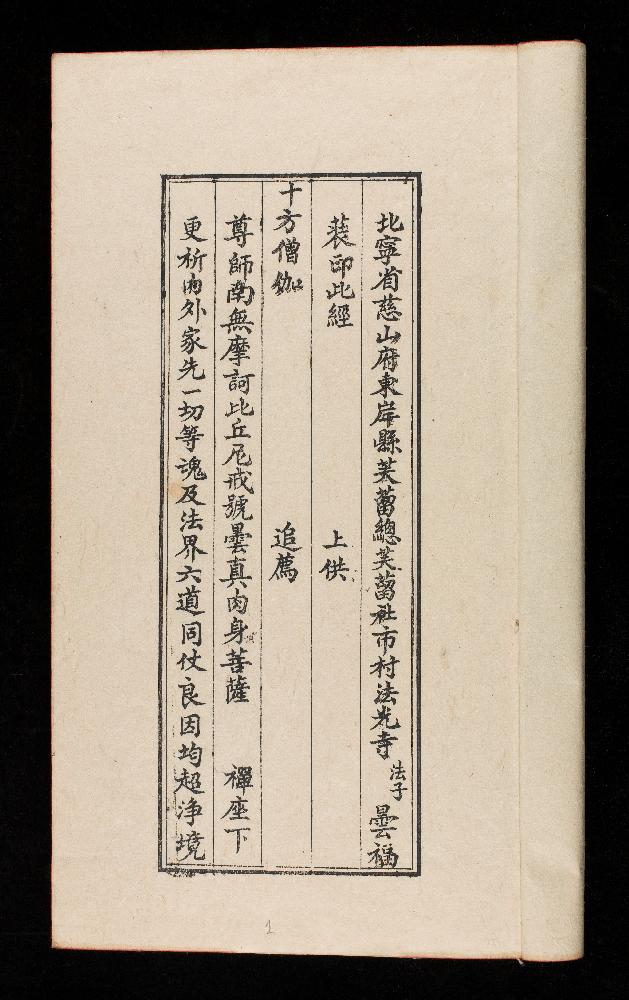 北寧省慈山府東岸縣芙蕾總芙蕾社市村法光寺法子曇福
裝印此經 上供
十方僧伽 追薦
尊師南無摩訶比丘尼戒號曇真肉身菩薩 禪座下
更祈內外家先一切等魂及法界六道同仗良因均超淨境
1